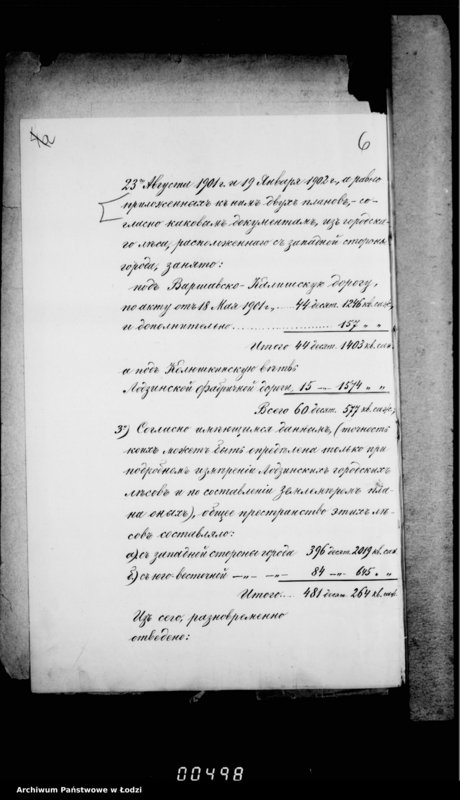 6
23го Августа 1901 г. и 19 Января 1902 г., а равно
приложенныхъ къ нимъ двухъ плановъ, - со-
гласно каковымъ документамъ, изъ городска-
го лѣса, расположеннаго съ западной стороны
города, занято:
подъ Варшавско-Калишскую дорогу,
по акту отъ 18 Мая 1901 г., .... 44 десят. 1246 кв. саж.,
и дополнительно .................. 157 „ „
Итого 44 десят. 1403 кв. саж.
а подъ Колюшкинскую вѣтвь
Лодзинской фабричной дороги, 15 -„- 1574 „ „
Всего 60 десят. 577 кв. саж.,
3е) Согласно имѣющимся даннымъ, (точность
коихъ можетъ быть опредѣлена только при
подробномъ измѣреніи Лодзинскихъ городскихъ
лѣсовъ и по составленіи Землемѣромъ пла-
на оныхъ), общее пространство этихъ лѣ-
совъ составляло:
а) съ западной стороны города 396 десят. 2019 кв. саж.
б) съ юго-восточной -„- -„- 84 -„- 645 „ „
Итого.... 481 десят. 264 кв. саж.
Изъ сего, разновременно
отведено:
00498
Archiwum Państwowe w Łodzi